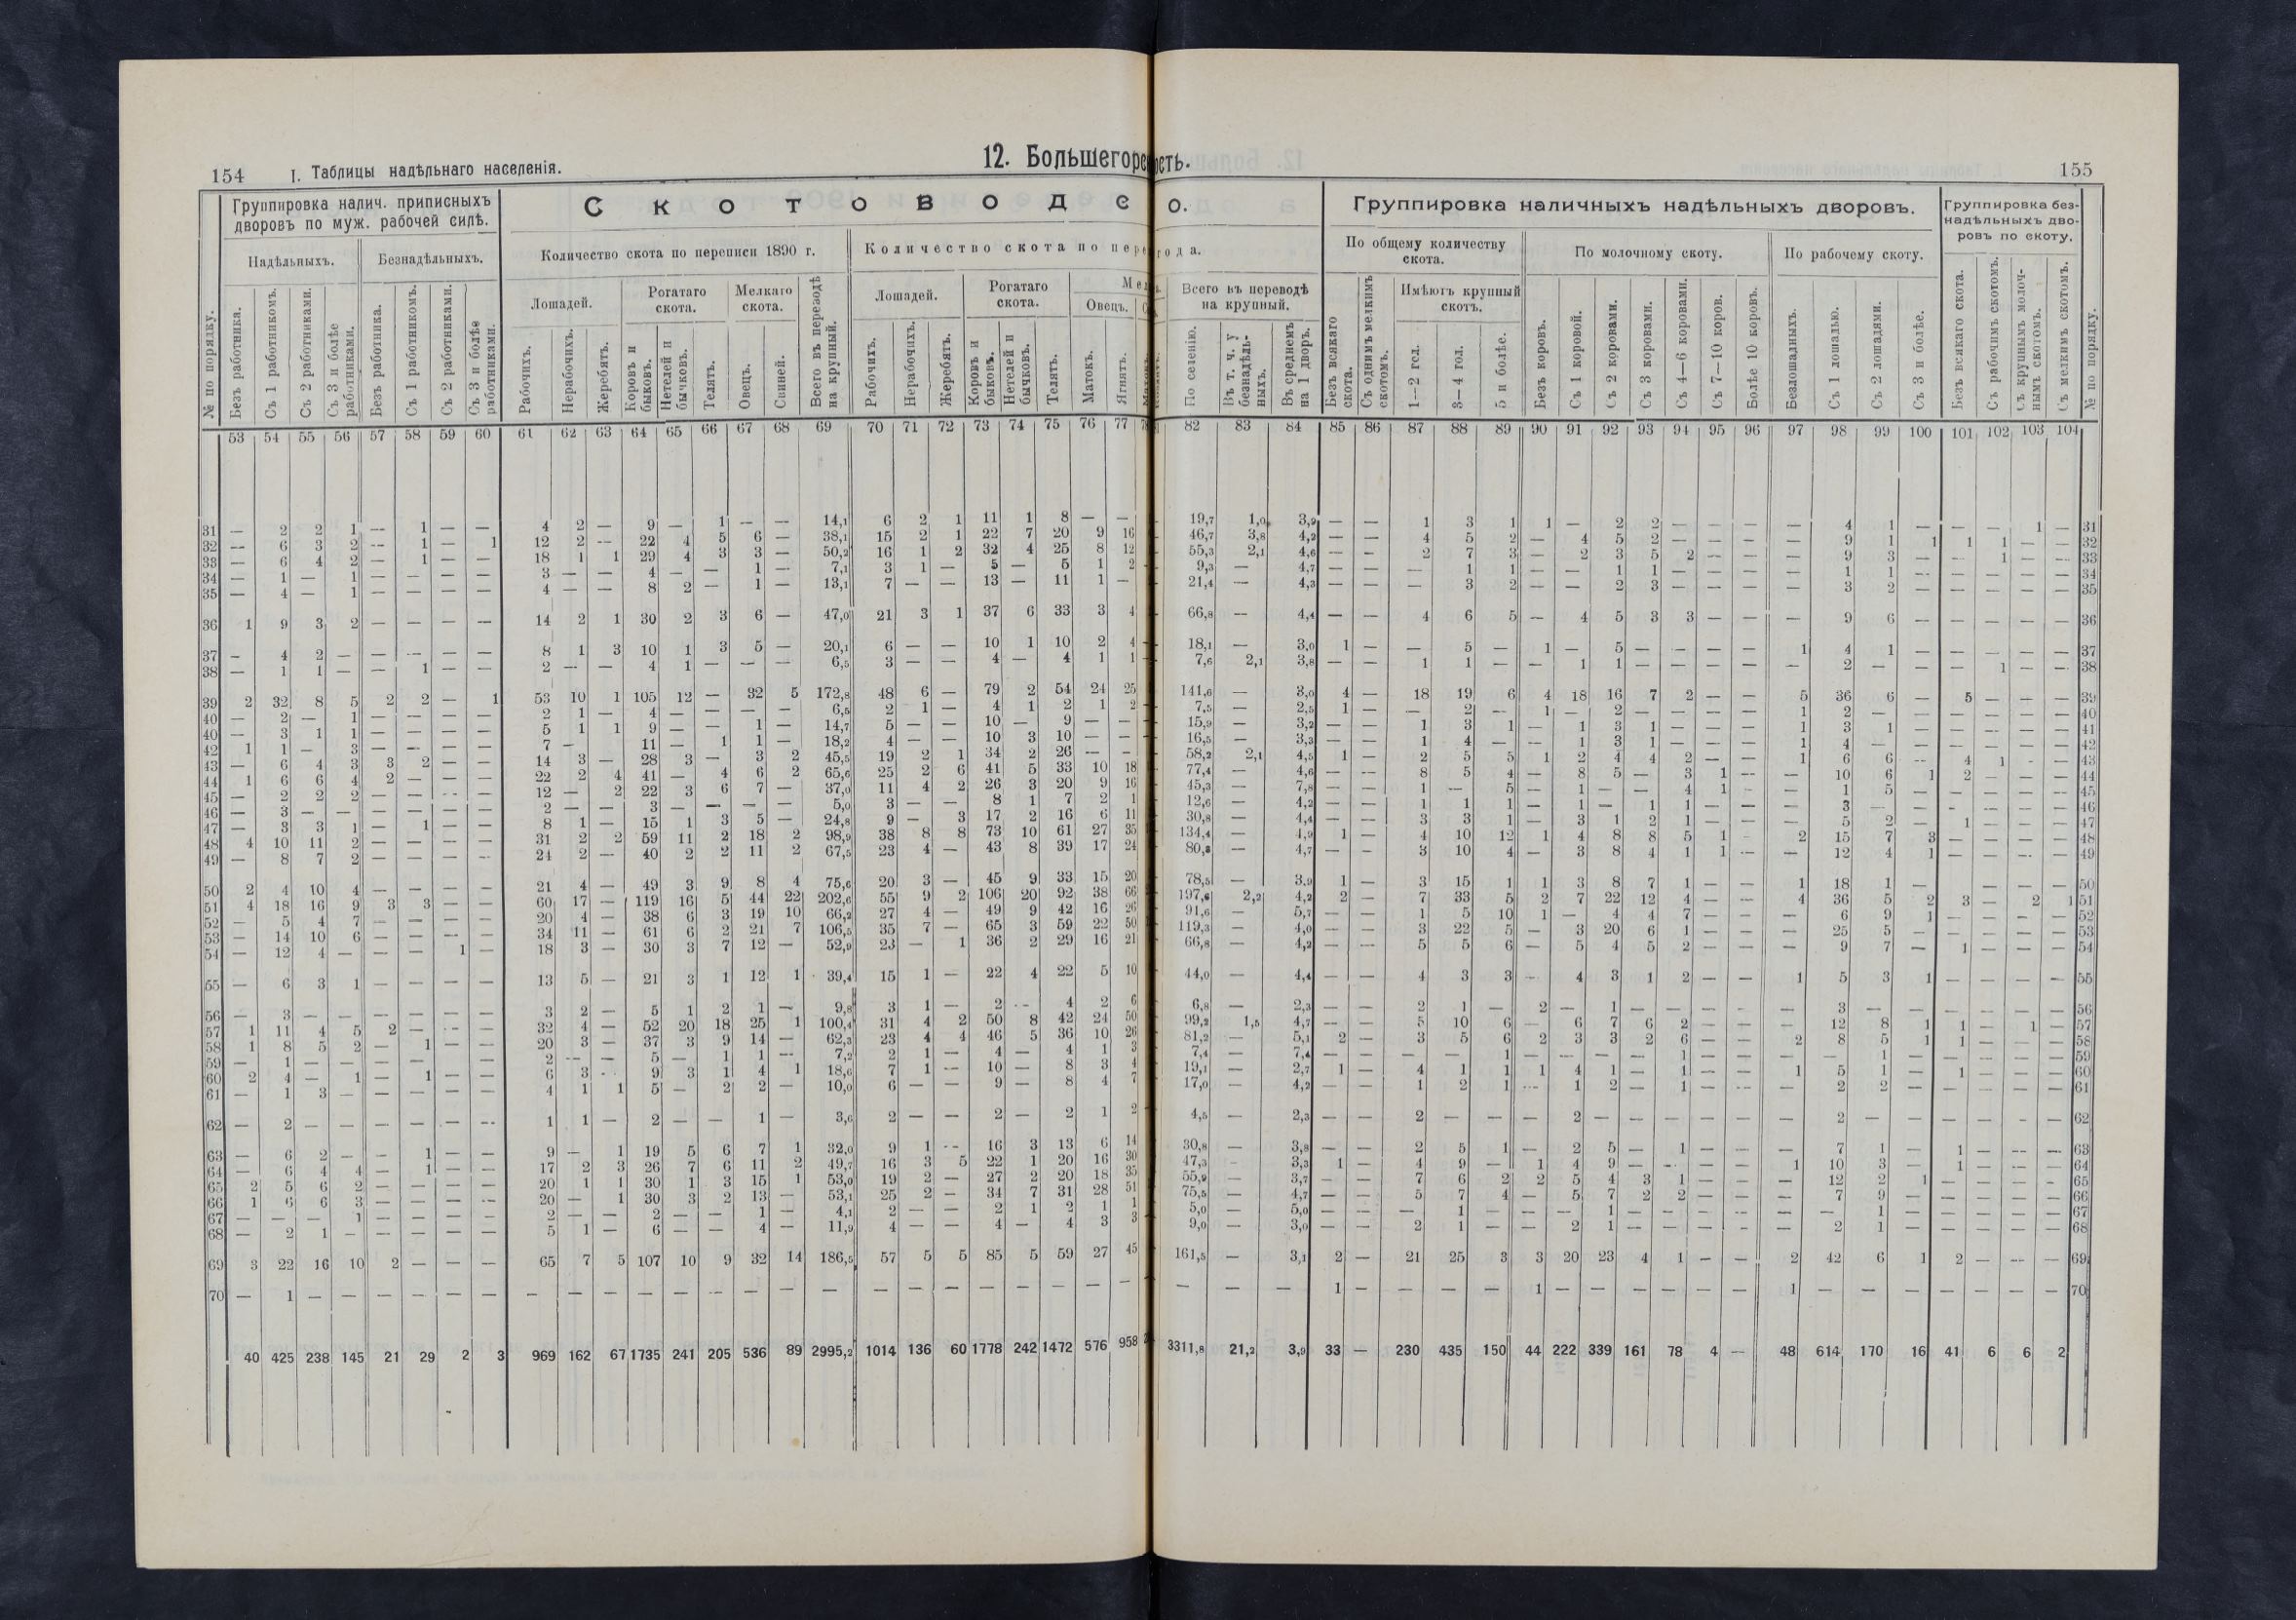 154 I. Таблицы надѣльнаго населенія.
12. Большегорс
ость.
155
Группировка налич. приписныхъ дворовъ по муж. рабочей силѣ.
Надѣльныхъ. Безнадѣльныхъ.
№ по порядку.
Безъ работника.
Съ 1 работникомъ.
Съ 2 работниками.
Съ 3 и болѣе работниками.
Безъ работника.
Съ 1 работникомъ.
Съ 2 работниками.
Съ 3 и болѣе работниками.
С к о т о в о д с о.
Количество скота по переписи 1890 г.
Лошадей. Рогатаго скота. Мелкаго скота.
Рабочихъ.
Нерабочихъ.
Жеребятъ.
Коровъ и быковъ.
Нетелей и бычковъ.
Телятъ.
Овецъ.
Свиней.
Всего въ переводѣ на крупный.
Количество скота по пере года.
Лошадей. Рогатаго скота. Овецъ.
Рабочихъ.
Нерабочихъ.
Жеребятъ.
Коровъ и быковъ.
Нетелей и бычковъ.
Телятъ.
Матокъ.
Ягнятъ.
Всего въ переводѣ на крупный.
По селенію.
Въ т. ч. у безнадѣльныхъ.
Въ среднемъ на 1 дворъ.
Группировка наличныхъ надѣльныхъ дворовъ.
По общему количеству скота.
Безъ всякаго скота.
Съ однимъ мелкимъ скотомъ.
Имѣютъ крупный скотъ.
1—2 гол.
3—4 гол.
5 и болѣе.
По молочному скоту.
Безъ коровъ.
Съ 1 коровой.
Съ 2 коровами.
Съ 3 коровами.
Съ 4—6 коровами.
Съ 7—10 коров.
Болѣе 10 коровъ.
По рабочему скоту.
Безлошадныхъ.
Съ 1 лошадью.
Съ 2 лошадями.
Съ 3 и болѣе.
Группировка безнадѣльныхъ дворовъ по скоту.
Безъ всякаго скота.
Съ рабочимъ скотомъ.
Съ крупнымъ молочнымъ скотомъ.
Съ мелкимъ скотомъ.
№ по порядку.
53 54 55 56 57 58 59 60 61 62 63 64 65 66 67 68 69 70 71 72 73 74 75 76 77 82 83 84 85 86 87 88 89 90 91 92 93 94 95 96 97 98 99 100 101 102 103 104
31 — 2 2 1 — 1 — — 4 2 — 9 — 1 — — 14,1 6 2 1 11 1 8 — — 19,7 1,0 3,9 — — 1 3 1 1 — 2 2 — — — — 4 1 — — — 1 — 31
32 — 6 3 2 — 1 — 1 12 2 — 22 4 5 6 — 38,1 15 2 1 22 7 20 9 16 46,7 3,8 4,2 — — 4 5 2 — 4 5 2 — — — — 9 1 1 1 1 — — 32
33 — 6 4 2 — 1 — — 18 1 1 29 4 3 3 — 50,2 16 1 2 32 4 25 8 12 55,3 2,1 4,6 — — 2 7 3 — 2 3 5 2 — — — 9 3 — — 1 — — 33
34 — 1 — 1 — — — — 3 — — 4 — — 1 — 7,1 3 1 — 5 — 5 1 2 9,3 — 4,7 — — — 1 1 — — 1 1 — — — — 1 1 — — — — — 34
35 — 4 — 1 — — — — 4 — — 8 2 — 1 — 13,1 7 — — 13 — 11 1 — 21,4 — 4,3 — — — 3 2 — — 2 3 — — — — 3 2 — — — — — 35
36 1 9 3 2 — — — — 14 2 1 30 2 3 6 — 47,0 21 3 1 37 6 33 3 4 66,8 — 4,4 — — 4 6 5 — 4 5 3 3 — — — 9 6 — — — — — 36
37 — 4 2 — — — — — 8 1 3 10 1 3 5 — 20,1 6 — — 10 1 10 2 4 18,1 — 3,0 1 — — 5 — 1 — 5 — — — — 1 4 1 — — — — — 37
38 — 1 1 — — 1 — — 2 — — 4 1 — — — 6,5 3 — — 4 — 4 1 1 7,6 2,1 3,8 — — 1 1 — — 1 1 — — — — — 2 — — — 1 — — 38
39 2 32 8 5 2 2 — 1 53 10 1 105 12 — 32 5 172,8 48 6 — 79 2 54 24 25 141,6 — 3,0 4 — 18 19 6 4 18 16 7 2 — — 5 36 6 — 5 — — — 39
40 — 2 — 1 — — — — 2 1 — 4 — — — — 6,5 2 1 — 4 1 2 1 2 7,5 — 2,5 1 — — 2 — 1 — 2 — — — — 1 2 — — — — — — 40
40 — 3 1 1 — — — — 5 1 1 9 — — 1 — 14,7 5 — — 10 — 9 — — 15,9 — 3,2 — — 1 3 1 — 1 3 1 — — — 1 3 1 — — — — — 41
42 1 1 — 3 — — — — 7 — 11 — 1 1 — 18,2 4 — — 10 3 10 — — 16,5 — 3,3 — — 1 4 — — 1 3 1 — — — 1 4 — — — — — — 42
43 — 6 4 3 3 2 — — 14 3 — 28 3 — 3 2 45,5 19 2 1 34 2 26 — — 58,2 2,1 4,5 1 — 2 5 5 1 2 4 4 2 — — 1 6 6 — 4 1 — — 43
44 1 6 6 4 2 — — — 22 2 4 41 — 4 6 2 65,6 25 2 6 41 5 33 10 18 77,4 — 4,6 — — 8 5 4 — 8 5 — 3 1 — — 10 6 1 2 — — — 44
45 — 2 2 2 — — — — 12 — 2 22 3 6 7 — 37,0 11 4 2 26 3 20 9 16 45,3 — 7,8 — — 1 — 5 — 1 — — 4 1 — — 1 5 — — — — — 45
46 — 3 — — — — — — 2 — — 3 — — — — 5,0 3 — — 8 1 7 2 1 12,6 — 4,2 — — 1 1 1 — 1 — 1 1 — — — 3 — — — — — — 46
47 — 3 3 1 — 1 — — 8 1 — 15 1 3 5 — 24,8 9 — 3 17 2 16 6 11 30,8 — 4,4 — — 3 3 1 — 3 1 2 1 — — — 5 2 — 1 — — — 47
48 4 10 11 2 — — — — 31 2 2 59 11 2 18 2 98,9 38 8 8 73 10 61 27 35 134,4 — 4,9 1 — 4 10 12 1 4 8 8 5 1 — 2 15 7 3 — — — — 48
49 — 8 7 2 — — — — 24 2 — 40 2 2 11 2 67,5 23 4 — 43 8 39 17 24 80,8 — 4,7 — — 3 10 4 — 3 8 4 1 1 — — 12 4 1 — — — — 49
50 2 4 10 4 — — — — 21 4 — 49 3 9 8 4 75,6 20 3 — 45 9 33 15 20 78,5 — 3,9 1 — 3 15 1 1 3 8 7 1 — — 1 18 1 — — — — — 50
51 4 18 16 9 3 3 — — 60 17 — 119 16 5 44 22 202,6 55 9 2 106 20 92 38 66 197,6 2,2 4,2 2 — 7 33 5 2 7 22 12 4 — — 4 36 5 2 3 — 2 1 51
52 — 5 4 7 — — — — 20 4 — 38 6 3 19 10 66,2 27 4 — 49 9 42 16 26 91,6 — 5,7 — — 1 5 10 1 — 4 4 7 — — — 6 9 1 — — — — 52
53 — 14 10 6 — — — — 34 11 — 61 6 2 21 7 106,5 35 7 — 65 3 59 22 50 119,3 — 4,0 — — 3 22 5 — 3 20 6 1 — — — 25 5 — — — — — 53
54 — 12 4 — — — 1 — 18 3 — 30 3 7 12 — 52,9 23 — 1 36 2 29 16 21 66,8 — 4,2 — — 5 5 6 — 5 4 5 2 — — — 9 7 — 1 — — — 54
55 — 6 3 1 — — — — 13 5 — 21 3 1 12 1 39,4 15 1 — 22 4 22 5 10 44,0 — 4,4 — — 4 3 3 — 4 3 1 2 — — 1 5 3 1 — — — — 55
56 — 3 — — — — — — 3 2 — 5 1 2 1 — 9,8 3 1 — 2 — 4 2 6 6,8 — 2,3 — — 2 1 — 2 — 1 — — — — — 3 — — — — — — 56
57 1 11 4 5 2 — — — 32 4 — 52 20 18 25 1 100,4 31 4 2 50 8 42 24 50 99,2 1,5 4,7 — — 5 10 6 — 6 7 6 2 — — — 12 8 1 1 — 1 — 57
58 1 8 5 2 — 1 — — 20 3 — 37 3 9 14 — 62,3 23 4 4 46 5 36 10 26 81,2 — 5,1 2 — 3 5 6 2 3 3 2 6 — — 2 8 5 1 1 — — — 58
59 — 1 — — — — — — 2 — — 5 — 1 1 — 7,2 2 1 — 4 — 4 1 3 7,4 — 7,4 — — — — 1 — — — — 1 — — — — 1 — — — — — 59
60 2 4 — 1 — 1 — — 6 3 — 9 3 1 4 1 18,6 7 1 — 10 — 8 3 4 19,1 — 2,7 1 — 4 1 1 1 4 1 — 1 — — 1 5 1 — 1 — — — 60
61 — 1 3 — — — — — 4 1 1 5 — 2 2 — 10,0 6 — — 9 — 8 4 7 17,0 — 4,2 — — 1 2 1 — 1 2 — 1 — — — 2 2 — — — — — 61
62 — 2 — — — — — — 1 1 — 2 — — 1 — 3,6 2 — — 2 — 2 1 2 4,5 — 2,3 — — 2 — — — 2 — — — — — — 2 — — — — — — 62
63 — 6 2 — — 1 — — 9 — 1 19 5 6 7 1 32,0 9 1 — 16 3 13 6 14 30,8 — 3,8 — — 2 5 1 — 2 5 — 1 — — — 7 1 — 1 — — — 63
64 — 6 4 4 — 1 — — 17 2 3 26 7 6 11 2 49,7 16 3 5 22 1 20 16 30 47,3 — 3,3 1 — 4 9 — 1 4 9 — — — — 1 10 3 — 1 — — — 64
65 2 5 6 2 — — — — 20 1 1 30 1 3 15 1 53,0 19 2 — 27 2 20 18 35 55,9 — 3,7 — — 7 6 2 2 5 4 3 1 — — — 12 2 1 — — — — 65
66 1 6 6 3 — — — — 20 — 1 30 3 2 13 — 53,1 25 2 — 34 7 31 28 51 75,5 — 4,7 — — 5 7 4 — 5 7 2 2 — — — 7 9 — — — — — 66
67 — — — 1 — — — — 2 — — 2 — — 1 — 4,1 2 — — 2 1 2 1 1 5,0 — 5,0 — — — 1 — — — 1 — — — — — — 1 — — — — — 67
68 — 2 1 — — — — — 5 1 — 6 — — 4 — 11,9 4 — — 4 — 4 3 3 9,0 — 3,0 — — 2 1 — — 2 1 — — — — — 2 1 — — — — — 68
69 3 22 16 10 2 — — — 65 7 5 107 10 9 32 14 186,5 57 5 5 85 5 59 27 45 161,5 — 3,1 2 — 21 25 3 3 20 23 4 1 — — 2 42 6 1 2 — — — 69
70 — 1 — — — — — — — — — — — — — — — — — — — — — — — — — — 1 — — — — 1 — — — — — — 1 — — — — — — — 70
40 425 238 145 21 29 2 3 969 162 67 1735 241 205 536 89 2995,2 1014 136 60 1778 242 1472 576 958 3311,8 21,2 3,9 33 — 230 435 150 44 222 339 161 78 4 — 48 614 170 16 41 6 6 2